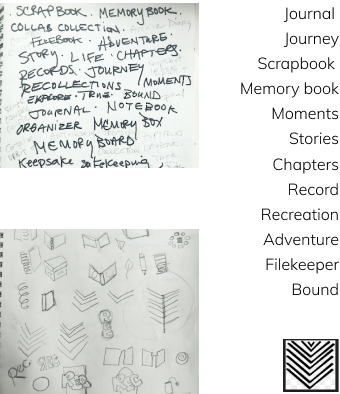 . SCRAPBOOK. MEMORYBOOK.
COLLAB COLLECTION.
FILEBOOK. ADVENTURE.
STORY. LIFE. CHAPTERS.
RECORDS. JOURNEY
RECOLLECTIONS. MOMENTS
EXPLORE. TRUE. BOUND
JOURNAL. NOTEBOOK
ORGANIZER MEMORY BOX
MEMORYBOARD
Keepsake safekeeping,
Journal
Journey
Scrapbook
Memory book
Moments
Stories
Chapters
Record
Recreation
Adventure
Filekeeper
Bound
Rec